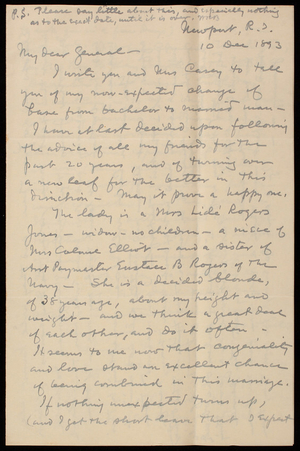 P.S. Please say little about this, and especially nothing
as to the exact date, until it is over.
Newport, R.I.
10 Dec 1893
My dear General -
I write you and Mrs Casey to tell
you of my now-expected change of
base from bachelor to married man -
I have at last decided upon following
the advice of all my friends for the
past 20 years, and of turning over
a new leaf for the better in this
direction - May it prove a happy one.
The lady is a Mrs Lidé Rogers
Jones - widow - no children - a niece of
Mrs Colonel Elliot - and a sister of
Asst Paymaster Eustace B Rogers of the
Navy - She is a decided blonde,
of 38 years age, about my height and
weight - and we think a great deal
of each other, and do it often -
It seems to me now that congeniality
and love stand an excellent chance
of being combined in this marriage.
If nothing unexpected turns up,
(and I get the short leave that I expect